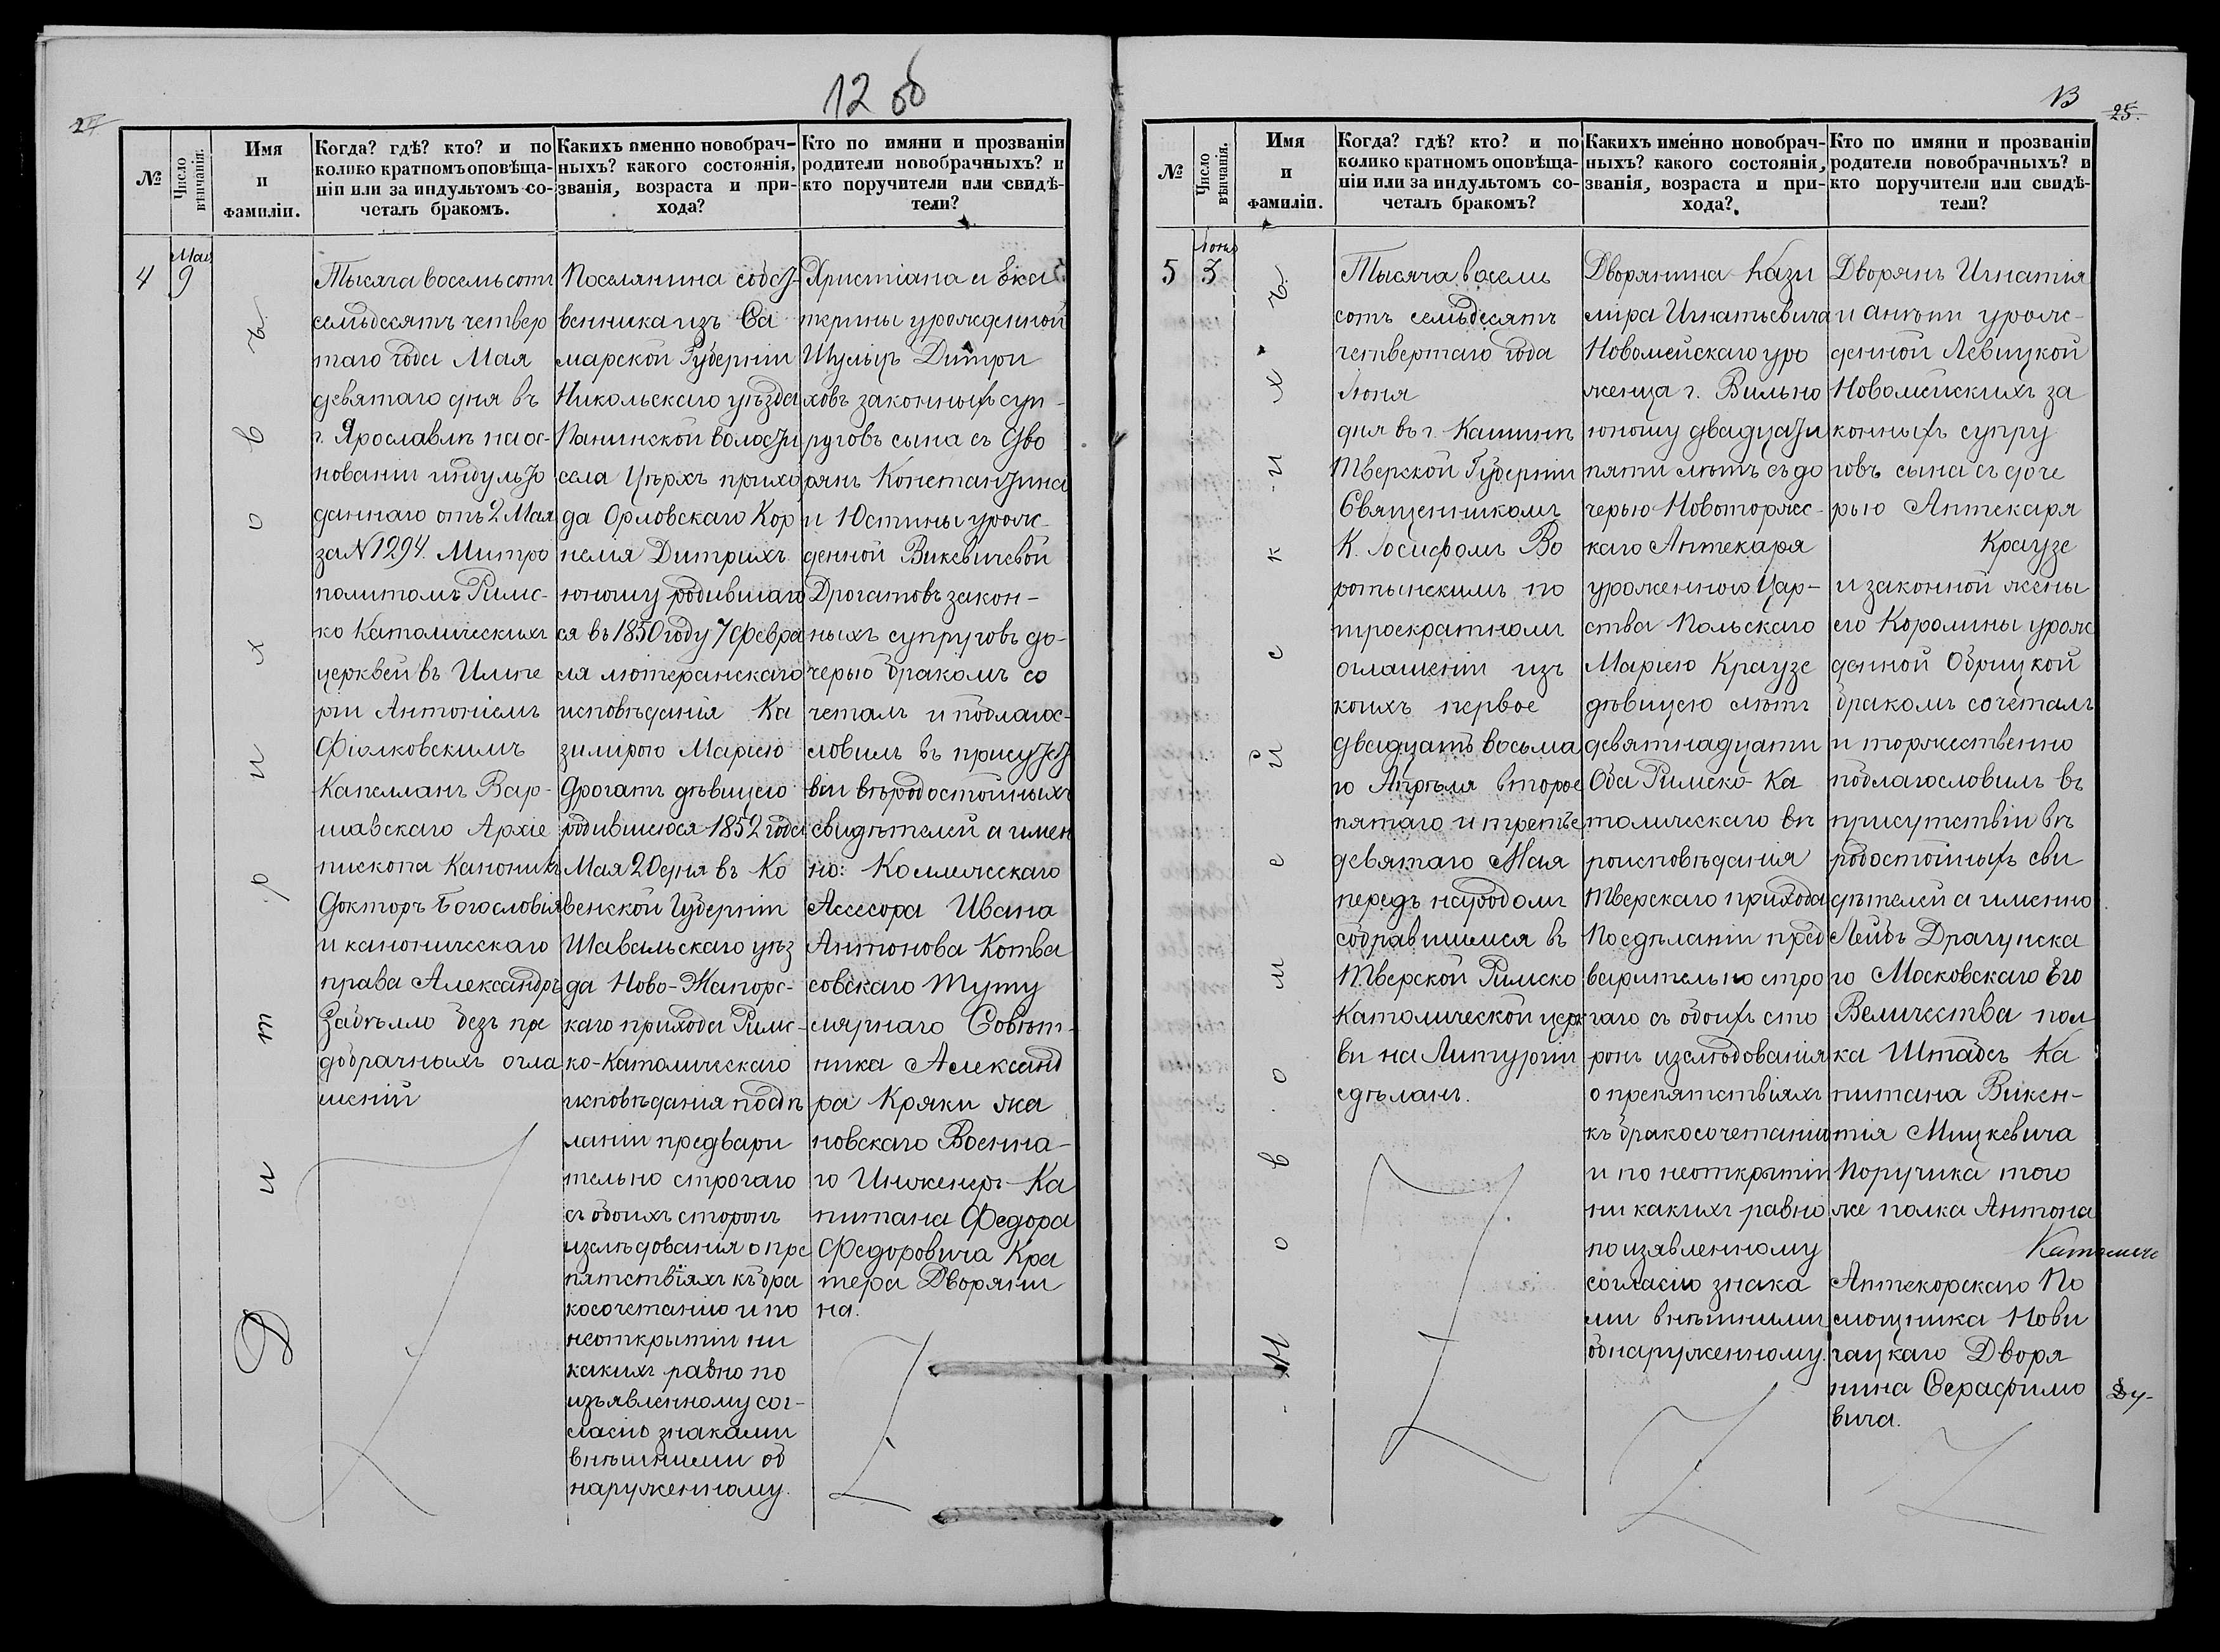 12 об
24
№
Число вѣнчанія.
Имя
и
фамиліи.
Когда? гдѣ? кто? и по
колико кратномъ оповѣща-
ніи или за индультомъ со-
четалъ бракомъ.
Какихъ именно новобрач-
ныхъ? какого состоянія,
званія, возраста и при-
хода?
Кто по имяни и прозванію
родители новобрачныхъ? и
кто поручители или свидѣ-
тели?
4
Мая
9
Дитриховъ
Тысяча восемьсотъ
семьдесятъ четвер
таго года Мая
девятаго дня въ
г. Ярославлѣ на ос-
нованіи индульто
даннаго отъ 2 Мая
за N 1294. Митро
политомъ Римс-
ко Католическихъ
церквей въ Импе
ріи Антоніемъ
Фіалковскимъ
Капелланъ Вар-
шавскаго Архіе
пископа Каноникъ
Докторъ Богословія
и каноническаго
права Александръ
Забѣлло безъ пре
добрачныхъ огла
шеній
Поселянина собст-
венника изъ Са
марской Губерніи
Никольскаго уѣзда
Панинской волости
села Цюрхъ прихо
да Орловскаго Кор
нелія Дитрихъ
юношу родившаго
ся въ 1850 году 7 Февра
ля лютеранскаго
исповѣданія Ка
зимирою Маріею
Дрогатъ дѣвицею
родившеюся 1852 года
Мая 20 дня въ Ко
венской Губерніи
Шавельскаго уѣз
да Ново-Жагорс-
каго прихода Римс-
ко-Католическаго
исповѣданія подѣ
ланіи предвари
тельно строгаго
съ обоихъ сторонъ
изслѣдованія о пре
пятствіяхъ къ бра
косочетанію и по
неоткрытіи ни
какихъ равно по
изъявленному сог-
ласію знаками
внѣшними об
наруженному.
Христіана и Ека
терины урожденной
Шульцъ Дитри
ховъ законныхъ суп-
руговъ сына съ Дво
рянъ Константина
и Юстины урож-
денной Викевичевой
Дрогатовъ закон-
ныхъ супруговъ до-
черью бракомъ со
четалъ и поблагос-
ловилъ въ присутст
віи вѣродостойныхъ
свидѣтелей а имен
но: Коллежскаго
Асесора Ивана
Антонова Котва
совскаго Титу
лярнаго Совѣт-
ника Александ
ра Кряки яка
новскаго Военна-
го Инженеръ-Ка
питана Федора
Федоровича Кра
тера Дворяни
на.
13
25.
№
Число вѣнчанія.
Имя
и
фамиліи.
Когда? гдѣ? кто? и по
колико кратномъ оповѣща-
ніи или за индультомъ со-
четалъ бракомъ?
Какихъ именно новобрач-
ныхъ? какого состоянія,
званія, возраста и при-
хода?
Кто по имяни и прозванію
родители новобрачныхъ? и
кто поручители или свидѣ-
тели?
5
Іюня
3
Новомейскихъ
Тысяча восемь
сотъ семьдесятъ
четвертаго года
Іюня
дня въ г. Кашинѣ
Тверской Губерніи
Священникомъ
К. Іосифомъ Во
ротынскимъ по
троекратномъ
оглашеніи изъ
коихъ первое
двадцать восьма
го Апрѣля второе
пятаго и третье
девятаго Мая
передъ народомъ
собравшимся въ
Тверской Римско
Католической церк
ви на Литургіи
сдѣланъ.
Дворянина Кази
мира Игнатьевича
Новомейскаго уро
женца г. Вильно
юношу двадцати
пяти лѣтъ съ до
черью Новоторжс-
каго Аптекаря
уроженного Цар-
ства Польскаго
Маріею Краузе
дѣвицею лѣтъ
девятнадцати
Оба Римско-Ка
толическаго вѣ
роисповѣданія
Тверскаго прихода
Посдѣланіи пред
варительно стро
гаго съ обоихъ сто
ронъ изслѣдованія
о препятствіяхъ
къ бракосочетанію
и по неоткрытіи
ни какихъ равно
по изявленному
согласію знака
ми внѣшними
обнаруженному.
Дворянъ Игнатія
и Анѣли урож-
денной Левицкой
Новомейскихъ за
конныхъ супру
говъ сына съ доче
рью Аптекаря
Краузе
и законной жены
его Королины урож
денной Обрицкой
бракомъ сочеталъ
и торжественно
поблагословилъ въ
присутствіи вѣ
родостойныхъ сви
дѣтелей а именно
Лейбъ Драгунска
го Московскаго Его
Величества пол
ка Штабсъ Ка
питана Викен-
тія Мицкевича
Поручика того
же полка Антона
Аптекорскаго По
мощника Нови
чацкаго Дворя
нина Серафимо
вича.